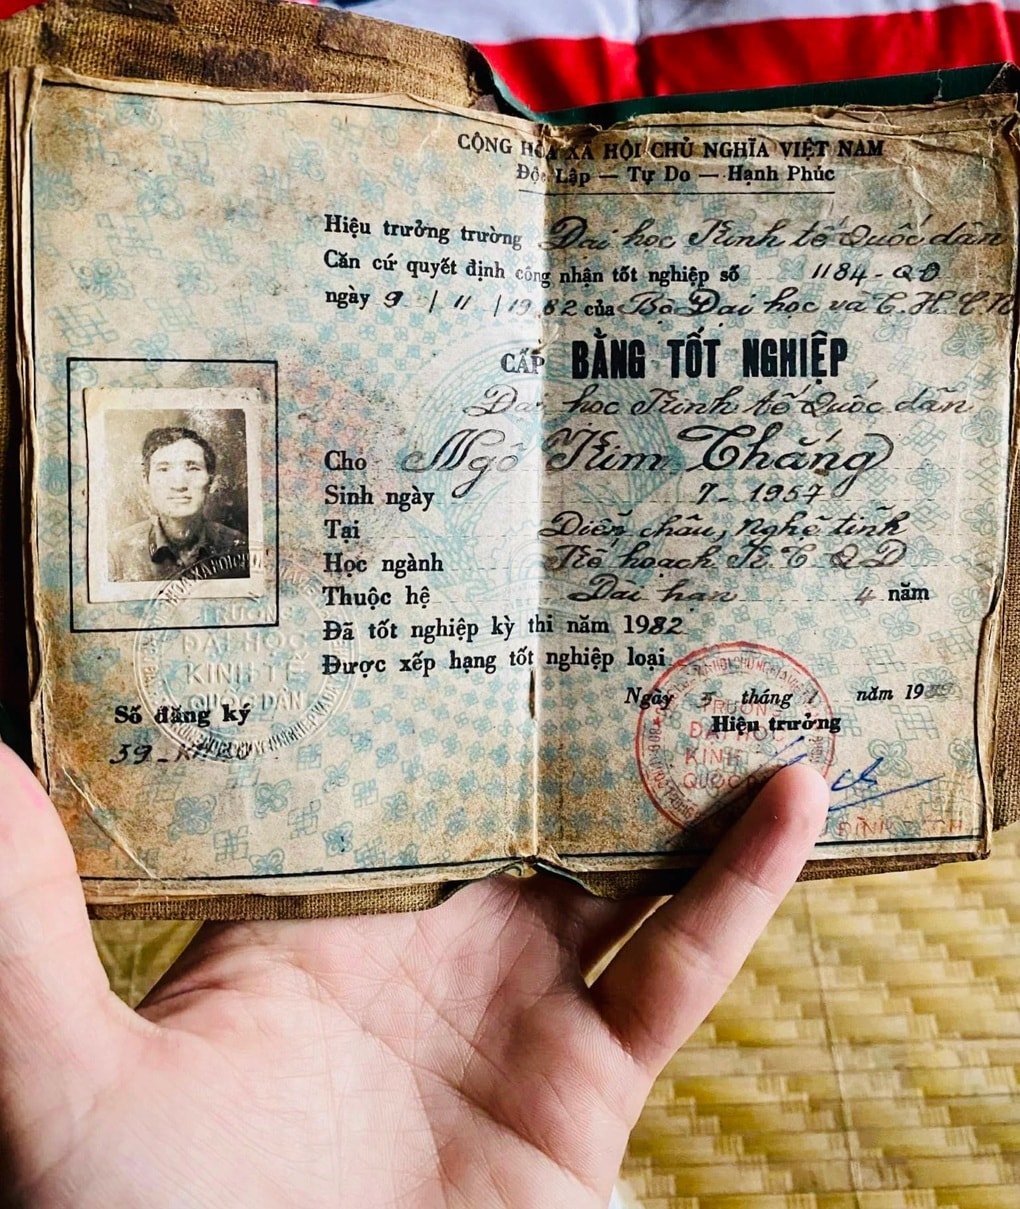 CỘNG HÒA XÃ HỘI CHỦ NGHĨA VIỆT NAM
Độc Lập — Tự Do — Hạnh Phúc
Hiệu trưởng trường Đại học Kinh tế Quốc dân
Căn cứ quyết định công nhận tốt nghiệp số 1184-QĐ
ngày 9 / 11 / 1982 của Bộ Đại học và T.H.C.N
CẤP BẰNG TỐT NGHIỆP
Đại học Kinh tế Quốc dân
Cho Ngô Kim Thắng
Sinh ngày 7- 1957
Tại Diễn châu, Nghệ tĩnh
Học ngành Kế hoạch K.T.Q.D
Thuộc hệ Dài hạn 4 năm
Đã tốt nghiệp kỳ thi năm 1982
Được xếp hạng tốt nghiệp loại
Ngày tháng 1 năm 19
Hiệu trưởng
TRƯỜNG
ĐẠI HỌC
KINH
QUỐC
TRƯỜNG
ĐẠI HỌC
KINH TẾ
QUỐC DÂN
Số đăng ký
39-